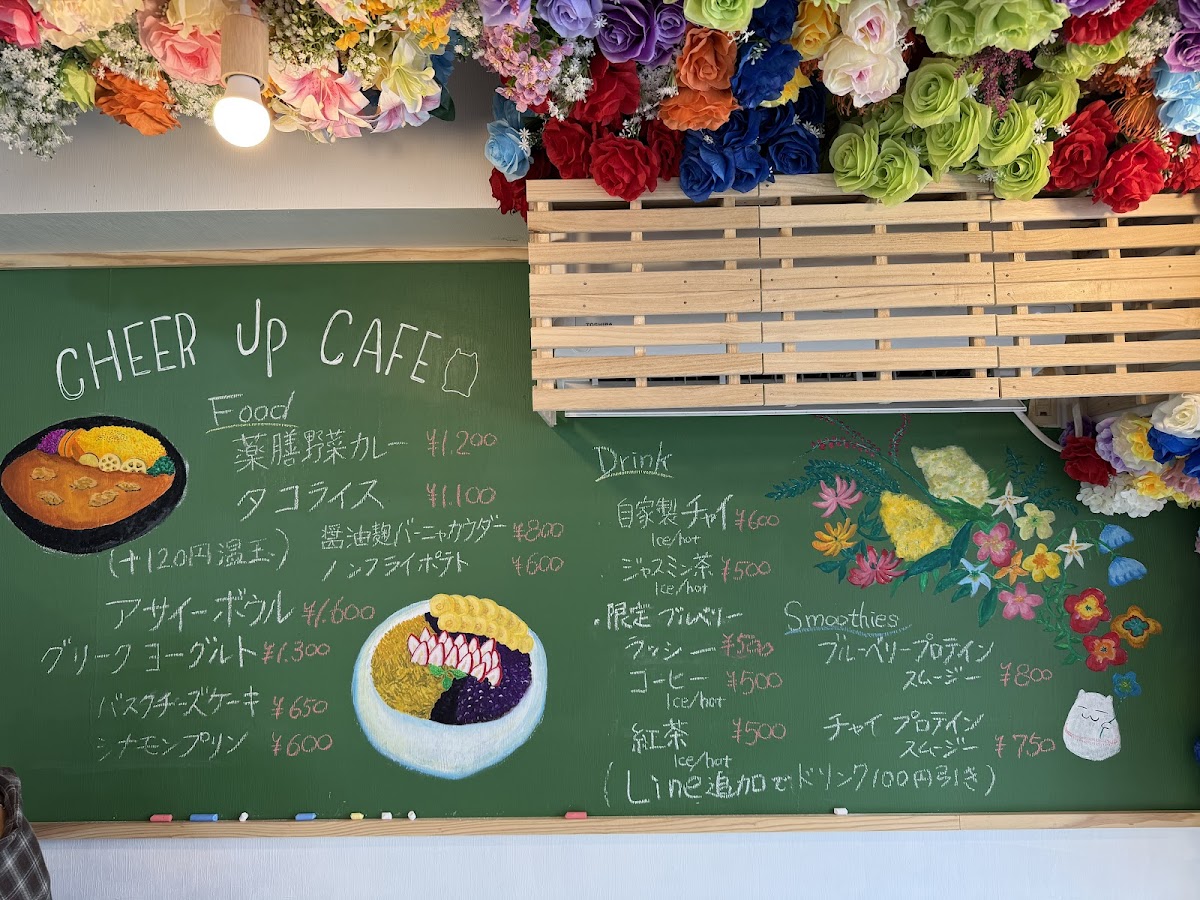 CHEER UP CAFE
Food
薬膳野菜カレー ¥1.200
タコライス ¥1.100
(+120円温玉)
醤油麹バーニャカウダー ¥800
ノンフライポテト ¥600
アサイーボウル ¥1.600
グリークヨーグルト ¥1.300
バスクチーズケーキ ¥650
シナモンプリン ¥600
Drink
・自家製チャイ ¥600
Ice/hot
・ジャスミン茶 ¥500
Ice/hot
・限定 ブルベリー
ラッシー ¥500
コーヒー ¥500
Ice/hot
紅茶 ¥500
Ice/hot
Smoothies
ブルーベリープロテイン
スムージー ¥800
チャイ プロテイン
スムージー ¥750
(Line追加でドリンク100円引き)
TOSHIBA